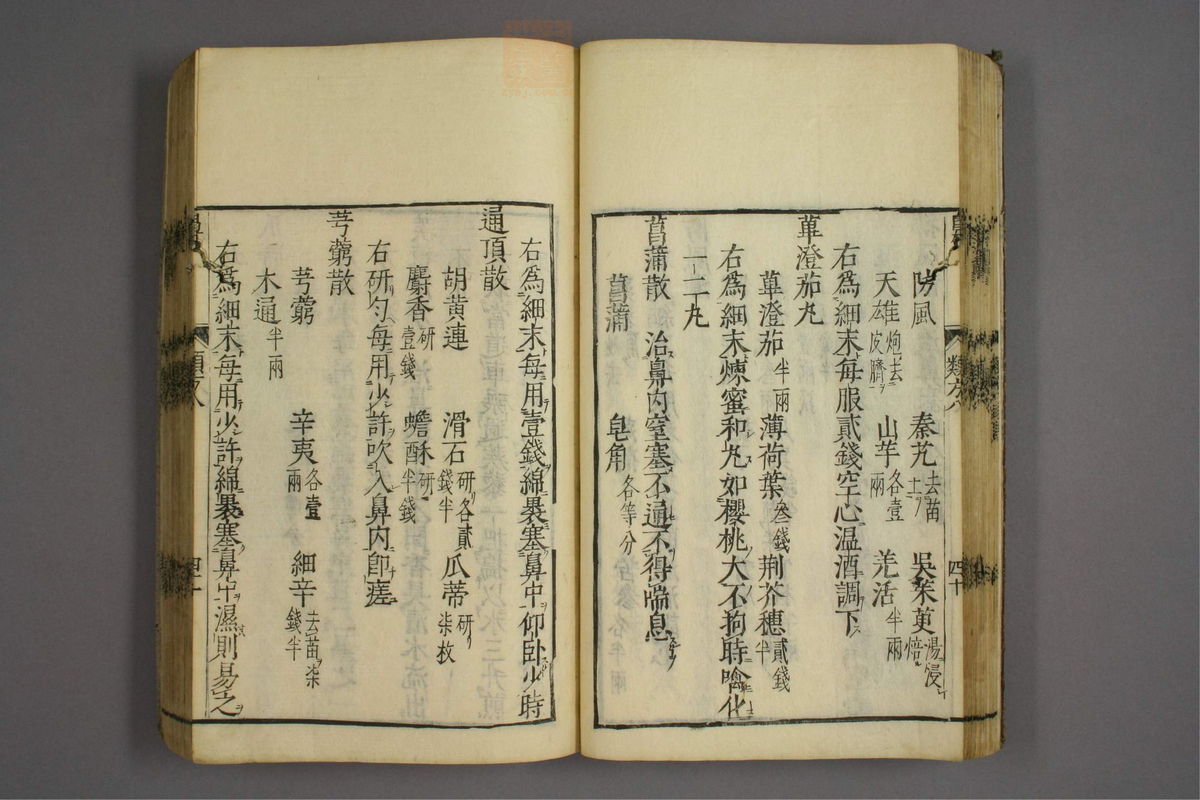 防風　秦艽去苗土　吳茱萸湯浸焙
天雄炮去皮臍　山芋各壹兩　羌活半兩
右為細末每服貳錢空心温酒調下
蓽澄茄丸
蓽澄茄半兩　薄荷葉叁錢　荆芥穗貳錢半
右為細末煉蜜和丸如櫻桃大不拘時噙化
一二丸
菖蒲散　治鼻内窒塞不通不得喘息
菖蒲　皂角各等分
類方八
四十
右為細末每用壹錢綿裹塞鼻中仰卧少時
通頂散
胡黄連　滑石研各貳錢半　瓜蒂研柒枚
麝香研壹錢　蟾酥研半錢
右研匀每用少許吹入鼻内即瘥
芎藭散
芎藭　辛夷各壹兩　細辛去苗柒錢半
木通半兩
右為細末每用少許綿裹塞鼻中濕則易之